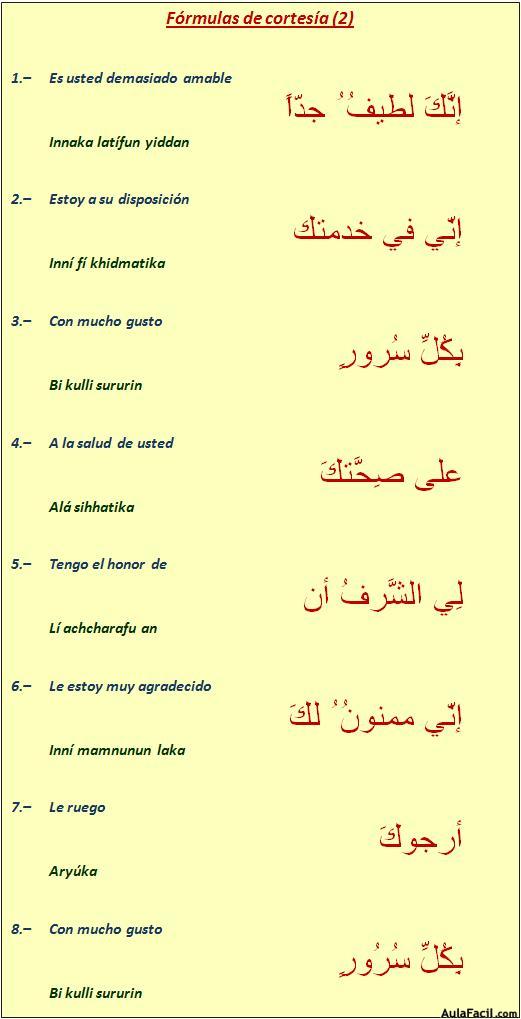 Fórmulas de cortesía (2)
1.– Es usted demasiado amable
إنَّكَ لطيفُ ُ جدّاً
Innaka latífun yiddan
2.– Estoy a su disposición
إنّي في خدمتك
Inní fí khidmatika
3.– Con mucho gusto
بِكُلِّ سُرورٍ
Bi kulli sururin
4.– A la salud de usted
على صِحَّتكَ
Alá sihhatika
5.– Tengo el honor de
لِي الشَّرفُ أن
Lí achcharafu an
6.– Le estoy muy agradecido
إنّي ممنونُ ُ لكَ
Inní mamnunun laka
7.– Le ruego
أرجوكَ
Aryúka
8.– Con mucho gusto
بِكُلِّ سُرُورٍ
Bi kulli sururin
AulaFacil.com